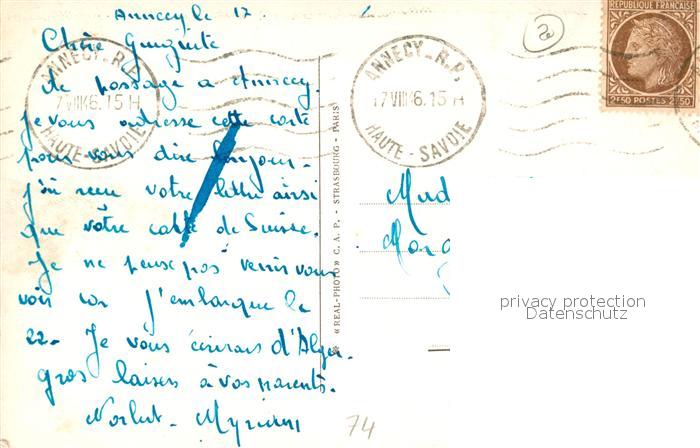 Annecy le 17
Chère
de passage a Annecy.
je vous adresse cette carte
pour vous dire bonjour.
j'ai reçu votre lettre ainsi
que vôtre carte de Suisse.
Je ne peux pas venir vous
voir car j'embarque le
22- Je vous écrirais d'Alger.
gros baisers à vos parents.
Myriam
74
ANNECY-R.P.
17 VIII 46. 15 H
HAUTE-SAVOIE
ANNECY-R.P.
17 VIII 46. 15 H
HAUTE-SAVOIE
REPUBLIQUE FRANÇAISE
2F50 POSTES 2F50
« REAL-PHOTO » C. A. P. - STRASBOURG - PARIS
privacy protection
Datenschutz